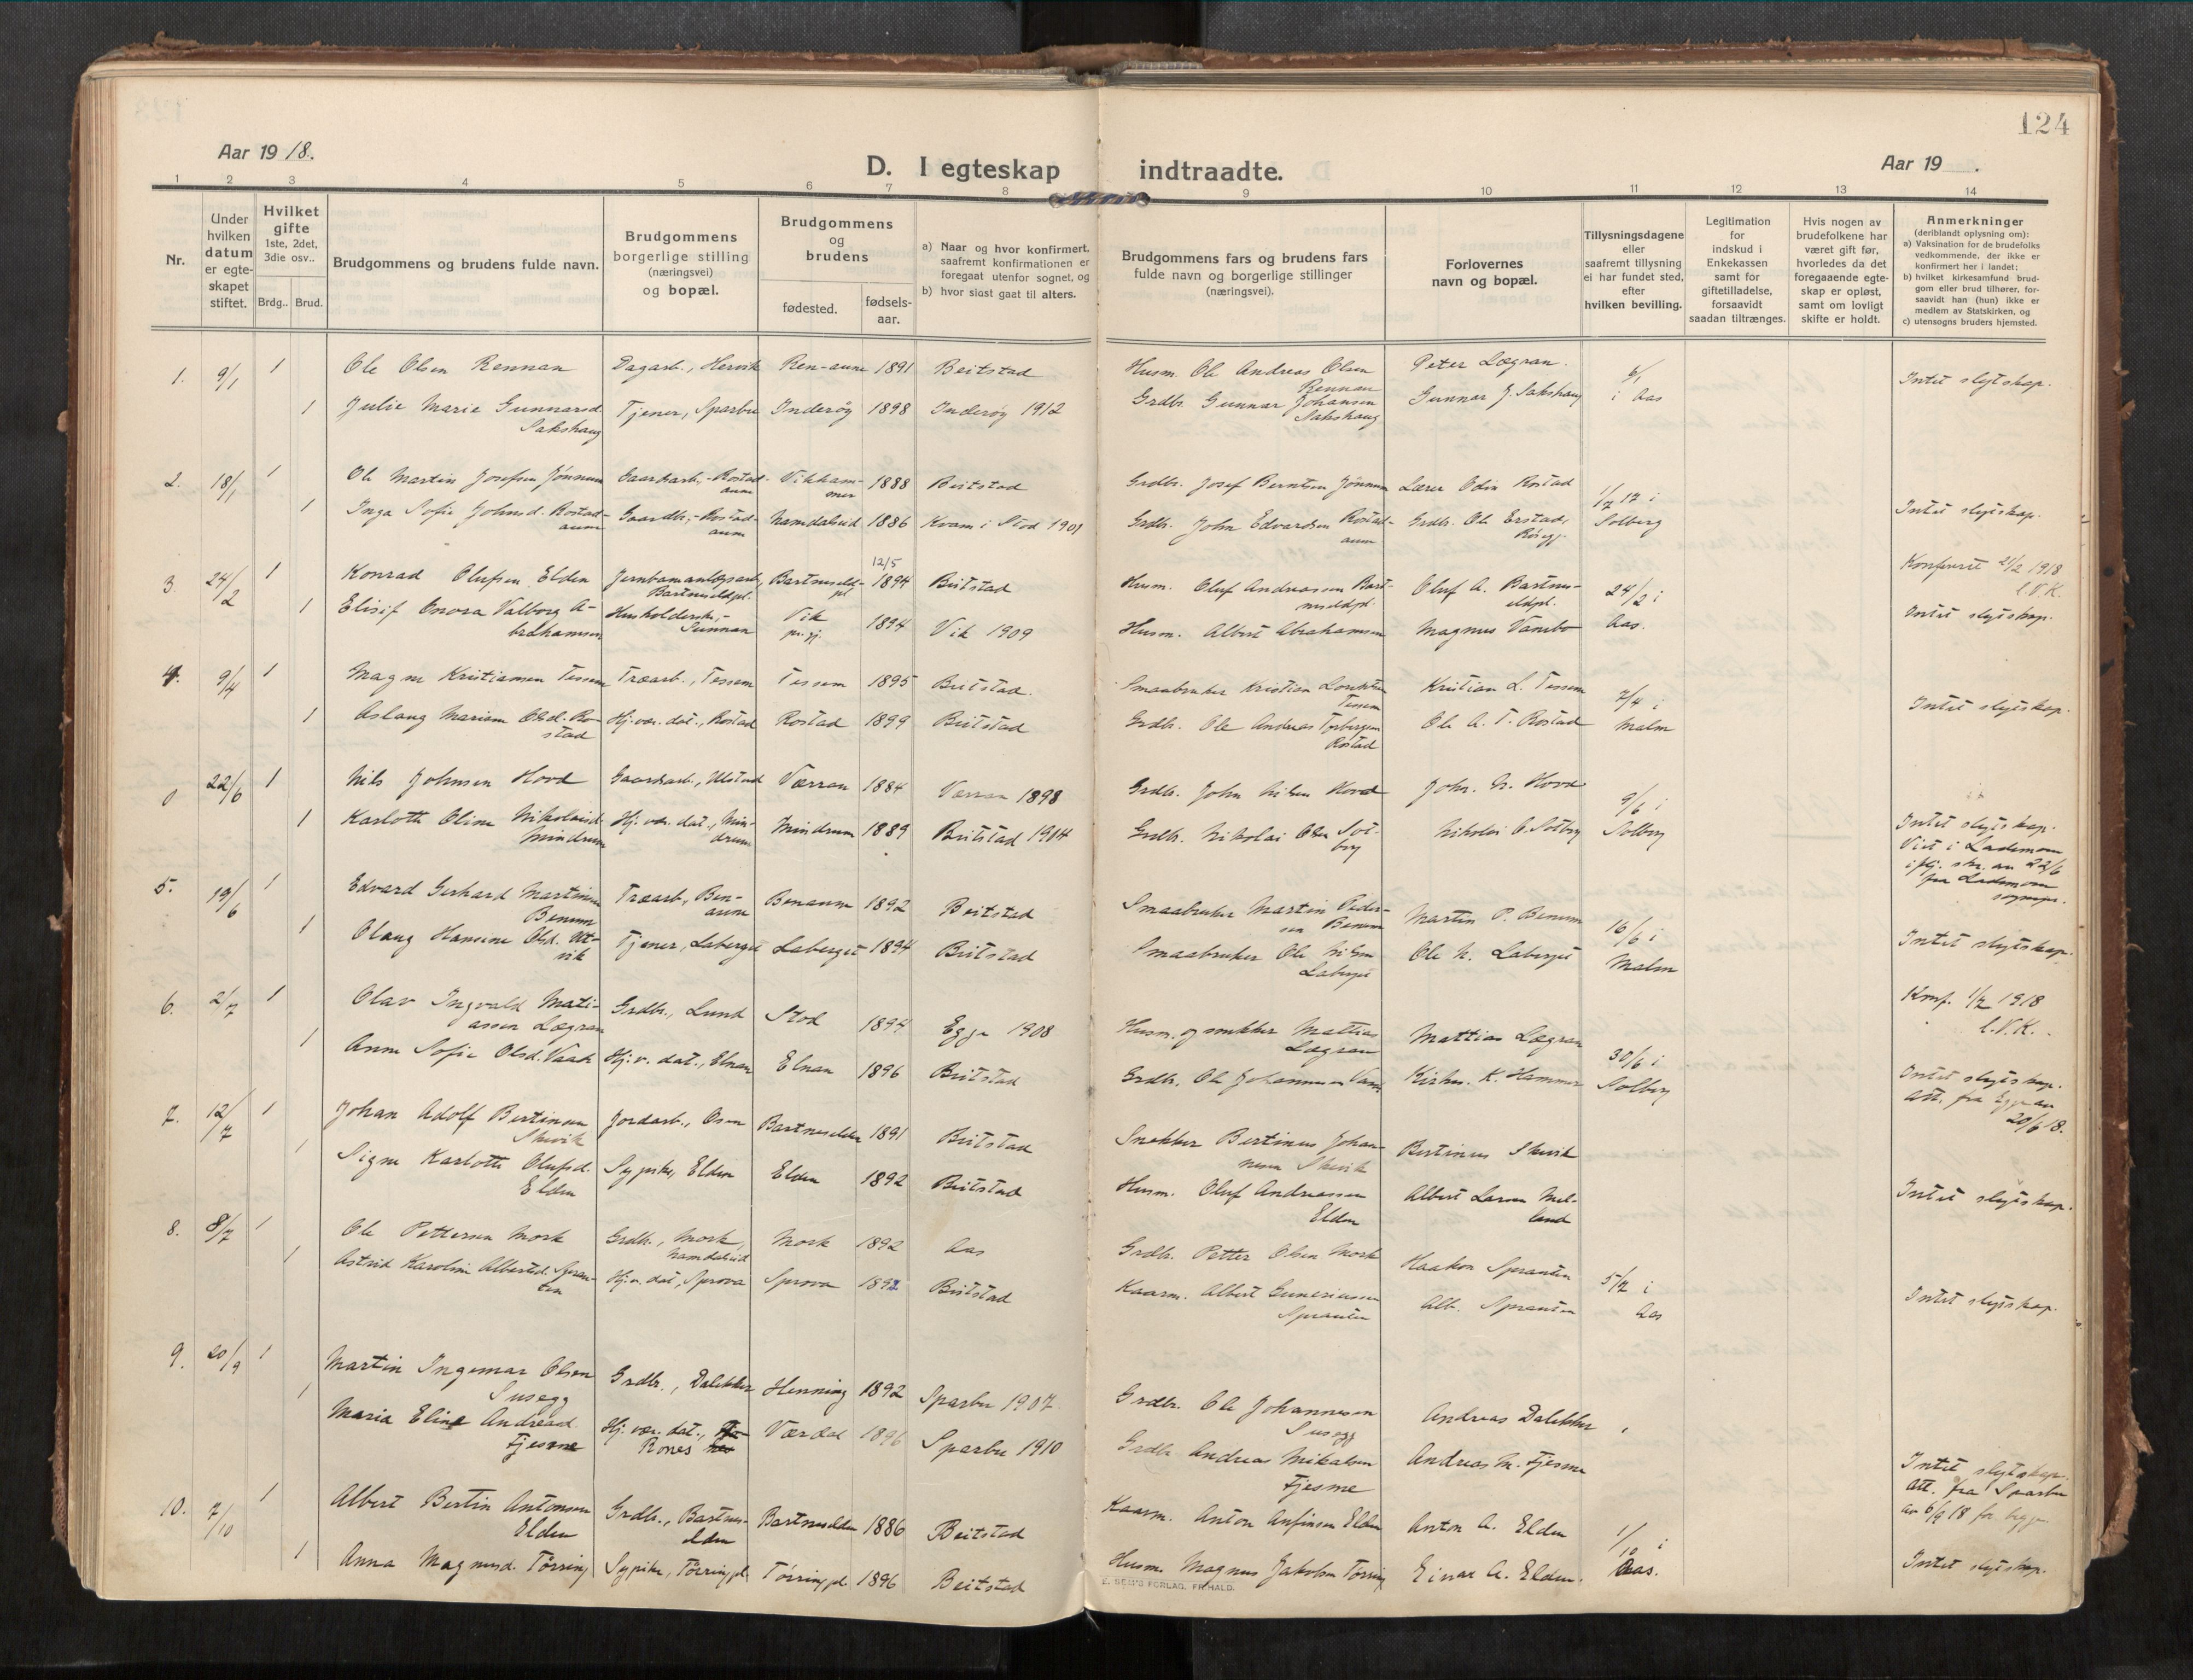 124
Aar 19 18.
D. I egteskap indtraadte.
Aar 19 .
1 2 3 4 5 6 7 8 9 10 11 12 13 14
Nr.
Under hvilken datum er egte-skapet stiftet.
Hvilket gifte 1ste, 2det, 3die osv..
Brdg.. Brud.
Brudgommens og brudens fulde navn.
Brudgommens borgerlige stilling (næringsvei) og bopæl.
Brudgommens og brudens
fødested.
fødsels-aar.
a) Naar og hvor konfirmert, saafremt konfirmationen er foregaat utenfor sognet, og
b) hvor sidst gaat til alters.
Brudgommens fars og brudens fars fulde navn og borgerlige stillinger (næringsvei).
Forlovernes navn og bopæl.
Tillysningsdagene eller saafremt tillysning ei har fundet sted, efter hvilken bevilling.
Legitimation for indskud i Enkekassen samt for giftetilladelse, forsaavidt saadan tiltrænges.
Hvis nogen av brudefolkene har været gift før, hvorledes da det foregaaende egte-skap er opløst, samt om lovligt skifte er holdt.
Anmerkninger (deriblandt oplysning om):
a) Vaksination for de brudefolks vedkommende, der ikke er konfirmert her i landet;
b) hvilket kirkesamfund brud-gom eller brud tilhører, for-saavidt han (hun) ikke er medlem av Statskirken, og
c) utensogns bruders hjemsted.
1. 9/1 1 Ole Olsen Rennan Dagarb., Hervik Ren-aune 1891 Beitstad Husm. Ole Andreas Olsen Rennan Peter Lægran. 6/1 i Aas Intet slegtskap.
1 Julie Marie Gunnarsd. Sakshaug Tjener, Sparbu Inderøy 1898 Inderøy 1912 Grdbr. Gunnar Johansen Sakshaug Gunnar J. Sakshaug
2. 18/1 1 Ole Martin Josefsen Jønnum Gaardsarb., Rostad-aune Vikham-mer 1888 Beitstad Grdbr. Josef Berntsen Jønnum Lærer Odin Rostad 1/7 17 i Solberg
1 Inga Sofie Johnsd. Rostad-aune Gaardbr., Rostad-aune Namdalseid 1886 Kvam i Stod 1901 Grdbr. John Edvardsen Rostad-aune Grdbr. Ole Erstad, Intet slegtskap.
3 24/2 1 Konrad Olufsen Elden Jernbaneanlægsarb., Bartneseldpl. Bartneseld-pl 12/5 1894 Beitstad Husm. Oluf Andreassen Bart-neseldpl. Oluf A. Bartnes-eldpl. 24/2 i Aas. Konferert 21/2 1918 l.V.K.
1 Elisif Onora Valborg A-brahamsen Husholderske, Sunnan Vik pr.gj. 1894 Vik 1909 Husm. Albert Abrahamsen Magnus Vambo Intet slegtskap.
4. 9/4 1 Magne Kristiansen Tessem Træarb., Tessem Tessem 1895 Beitstad. Smaabruker Kristian Tessem Kristian L. Tessem 7/4 i Malm
1 Aslaug Mariem Olsd. Ro-stad Hj. vær. dat., Rostad Rostad 1899 Beitstad Grdbr. Ole Andreas Torbergsen Rostad Ole A. T. Rostad Intet slegtskap.
0 22/6 1 Nils Johnsen Hovd Gaardsarb., Ulstad Værran 1884 Værran 1898 Grdbr. John Nilsen Hovd John. N. Hovd 9/6 i Solberg
1 Karlotte Oline Nikolaisd. Mindrum Hj. vær. dat., Min-drum Mindrum 1889 Beitstad 1904 Grdbr. Nikolai Olsen Sol-berg Nikolai O. Solberg Intet slegtskap. Viet i Lademoen iflg. skr. av 22/6 fra Lademoen sognepr.
5. 19/6 1 Edvard Gerhard Martinsen Benum Træarb., Ben-aune Benaune 1892 Beitstad Smaabruker Martin Peder-sen Benum Martin P. Benum 16/6 i Malm
1 Olaug Hansine Olsd. Ut-vik Tjener, Laberget Laberget 1894 Beitstad Smaabruker Ole Nilsen Laberget Ole N. Laberget Intet slegtskap.
6. 2/7 1 Olav Ingvald Mati-assen Lægran Grdbr., Lund Stod 1894 Egge 1908 Husm. og snekker Mattias Lægran Mattias Lægran 30/6 i Solberg Konf. 1/7 1918 l.V.K.
1 Anne Sofie Olsd. Vaak Hj. v. dat., Elnan Elnan 1896 Beitstad Grdbr. Ole Johannesen K. Hammer Intet slegtskap. Att. fra Egge av 20/6 18.
7. 12/7 1 Johan Adolf Bertinsen Skevik Jordarb., Osen Bartneselden 1891 Beitstad Snekker Bertinus Johan-nesen Skevik Bertinus Skevik
1 Signe Karlotte Olufsd. Elden Sypike, Elden Elden 1892 Beitstad Husm. Oluf Andreassen Elden Albert Larsen Mel-land Intet slegtskap.
8. 8/7 1 Ole Pettersen Mork Grdbr., Mork, Namdalseid Mork 1892 Aas Grdbr. Petter Olsen Mork Haakon Sprauten 5/7 i Aas
1 Astrid Karoline Albertsd. Sprau-ten Hj. v. dat., Sprova Sprova 1892 Beitstad Kaarm. Albert Guneriussen Sprauten Alb. Sprauten Intet slegtskap.
9. 20/9 1 Martin Ingemar Olsen Susegg Grdbr., Dalekker Henning 1892 Sparbu 1907. Grdbr. Ole Johannesen Susegg Andreas Dalekker
1 Maria Eline Andreasd. Fjesme Hj. vær. dat., Rones Værdal 1896 Sparbu 1910 Grdbr Andreas Mikalsen Fjesme Andreas M. Fjesme Intet slegtskap. Att. fra Sparbu av 6/9 18 for begge
10. 7/10 1 Albert Bertin Antonsen Elden Grdbr., Bartnes-elden Bartneselden 1886 Beitstad Kaarm. Anton Anfinsen Elden Anton A. Elden 1/10 i Aas.
1 Anna Magnusd. Tørring Sypike, Tørringpl. Tørringpl. 1896 Beitstad Husm. Magnus Jakobsen Tørring Einar A. Elden. Intet slegtskap.
E. SEM'S FORLAG, FR.HALD.